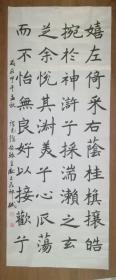 嬉左倚采右蔭桂旗攘皓
腕於神滸兮採湍瀨之玄
芝余悦其淑美兮心振蕩
而不怡無良好以接歡兮